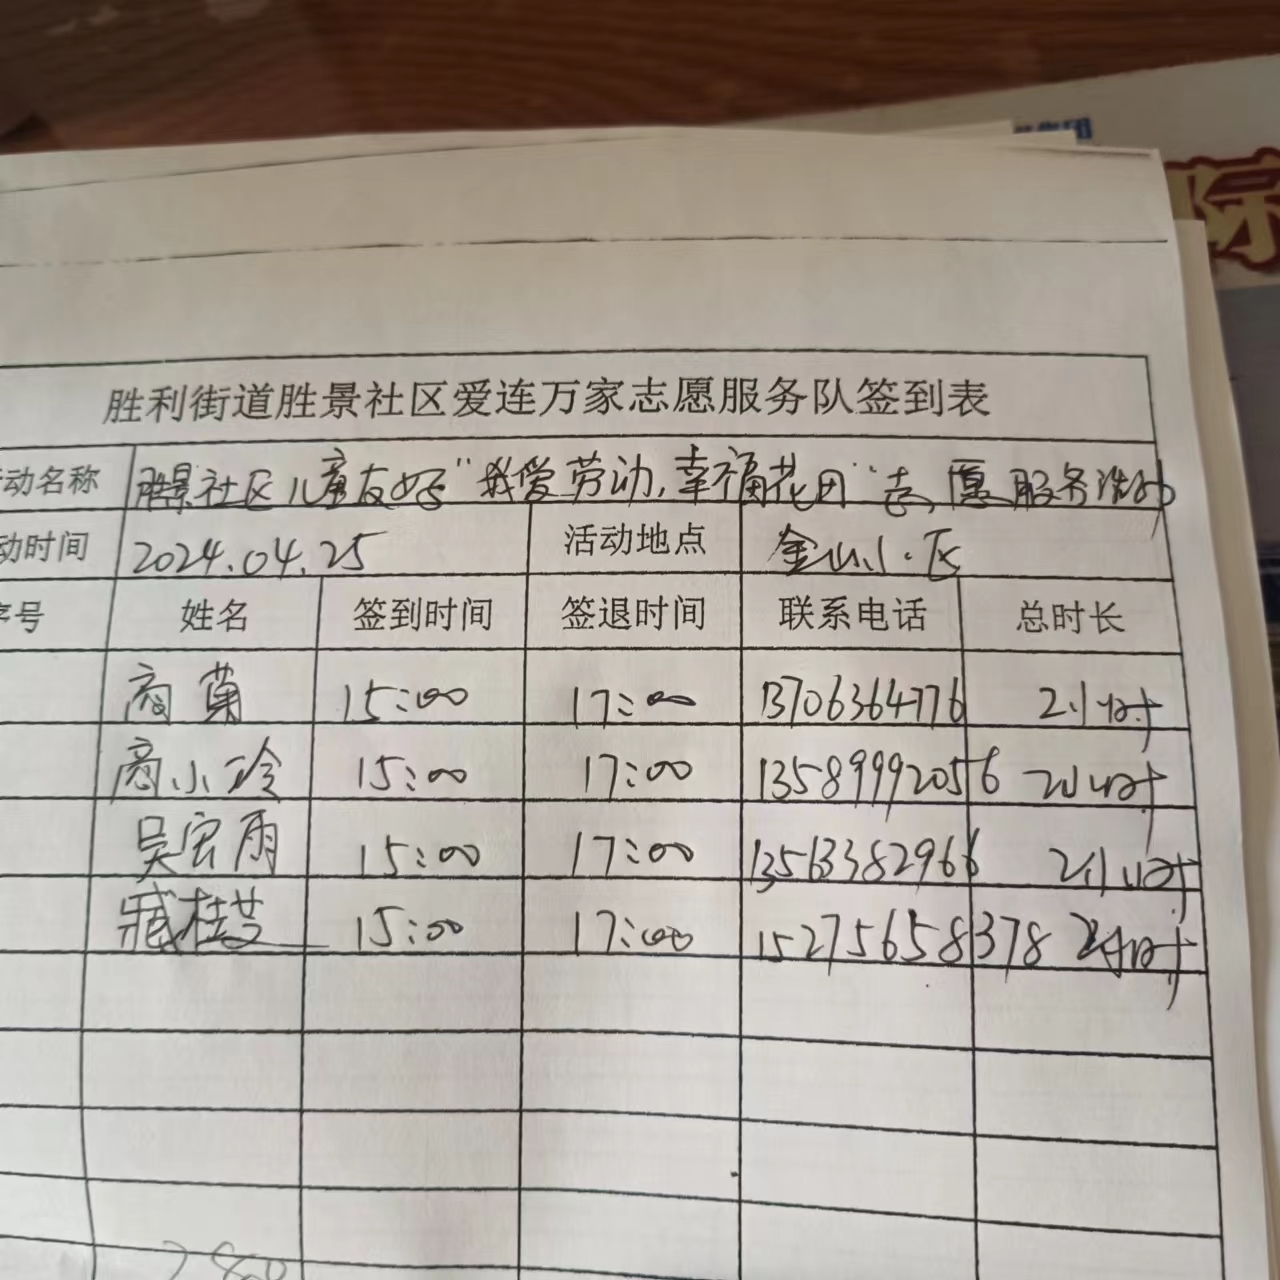 际
胜利街道胜景社区爱连万家志愿服务队签到表
动名称 胜景社区儿童友好“我爱劳动,幸福花园”志愿服务活动
动时间 2024.04.25 活动地点 金山小区
序号 姓名 签到时间 签退时间 联系电话 总时长
商菊 15:00 17:00 13706364776 2小时
商小玲 15:00 17:00 13589992056 2小时
吴宏雨 15:00 17:00 13563382966 2小时
臧桂芝 15:00 17:00 15275658378 2小时